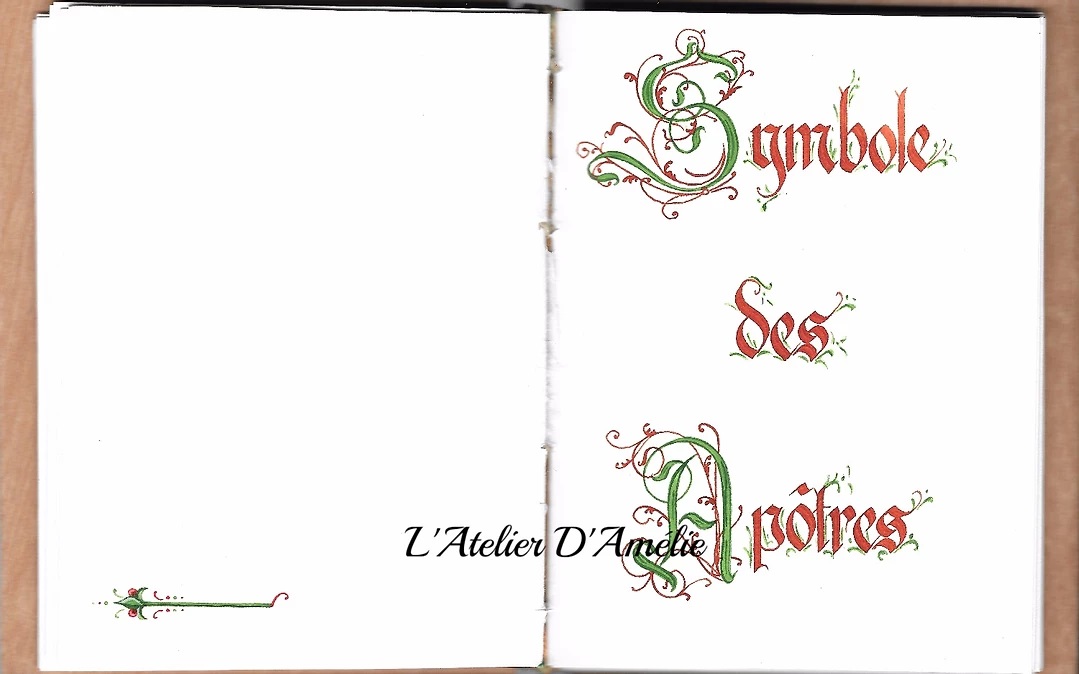 Symbole
des
Apôtres
L'Atelier D'Amelie